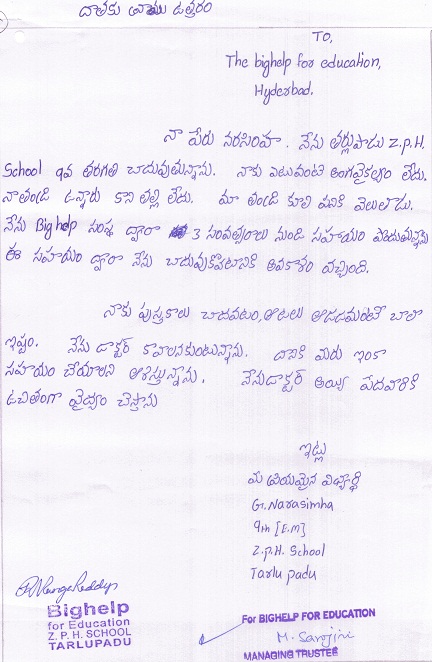 దాతకు నాయు ఉత్తరం
TO,
The bighelp for education,
Hyderbad.
నా పేరు నరసింహ. నేను తర్లుపాడు Z.P.H.
School 9వ తరగతి చాదువుతున్నాను. నాకు ఎటువంటి అంగవైకల్యం లేదు.
నాతండ్రి ఉన్నారు కాని తల్లి లేదు. మా తండ్రి కూలి పనికి వెలులాడు.
నేను Bighelp సంస్థ ద్వారా 3 సంవత్సరాలు నుండి సహాయం పొందుతున్నాను
ఈ సహాయం ద్వారా నేను చాదువుకొవటానికి అవకాశం వచ్చింది.
నాకు పుస్తకాలు చాదవటం, ఆటలు ఆడడమంటే చాలా
ఇష్టం. నేను డాక్టర్ కావాలనకుంటున్నాను. దానికి మీరు ఇంకా
సహాయం చేయాలని ఆశిస్తున్నాను. నేనుడాక్టర్ అయ్యి పేదవారికి
ఉచితంగా వైద్యం చేస్తాను
ఇట్లు
మీ ప్రియమైన విద్యార్థి
G. Narasimha
9th [E.M]
Z.p.H. School
Tarlu padu
Bighelp
for Education
Z. P. H. SCHOOL
TARLUPADU
For BIGHELP FOR EDUCATION
M. Sarojini
MANAGING TRUSTEE